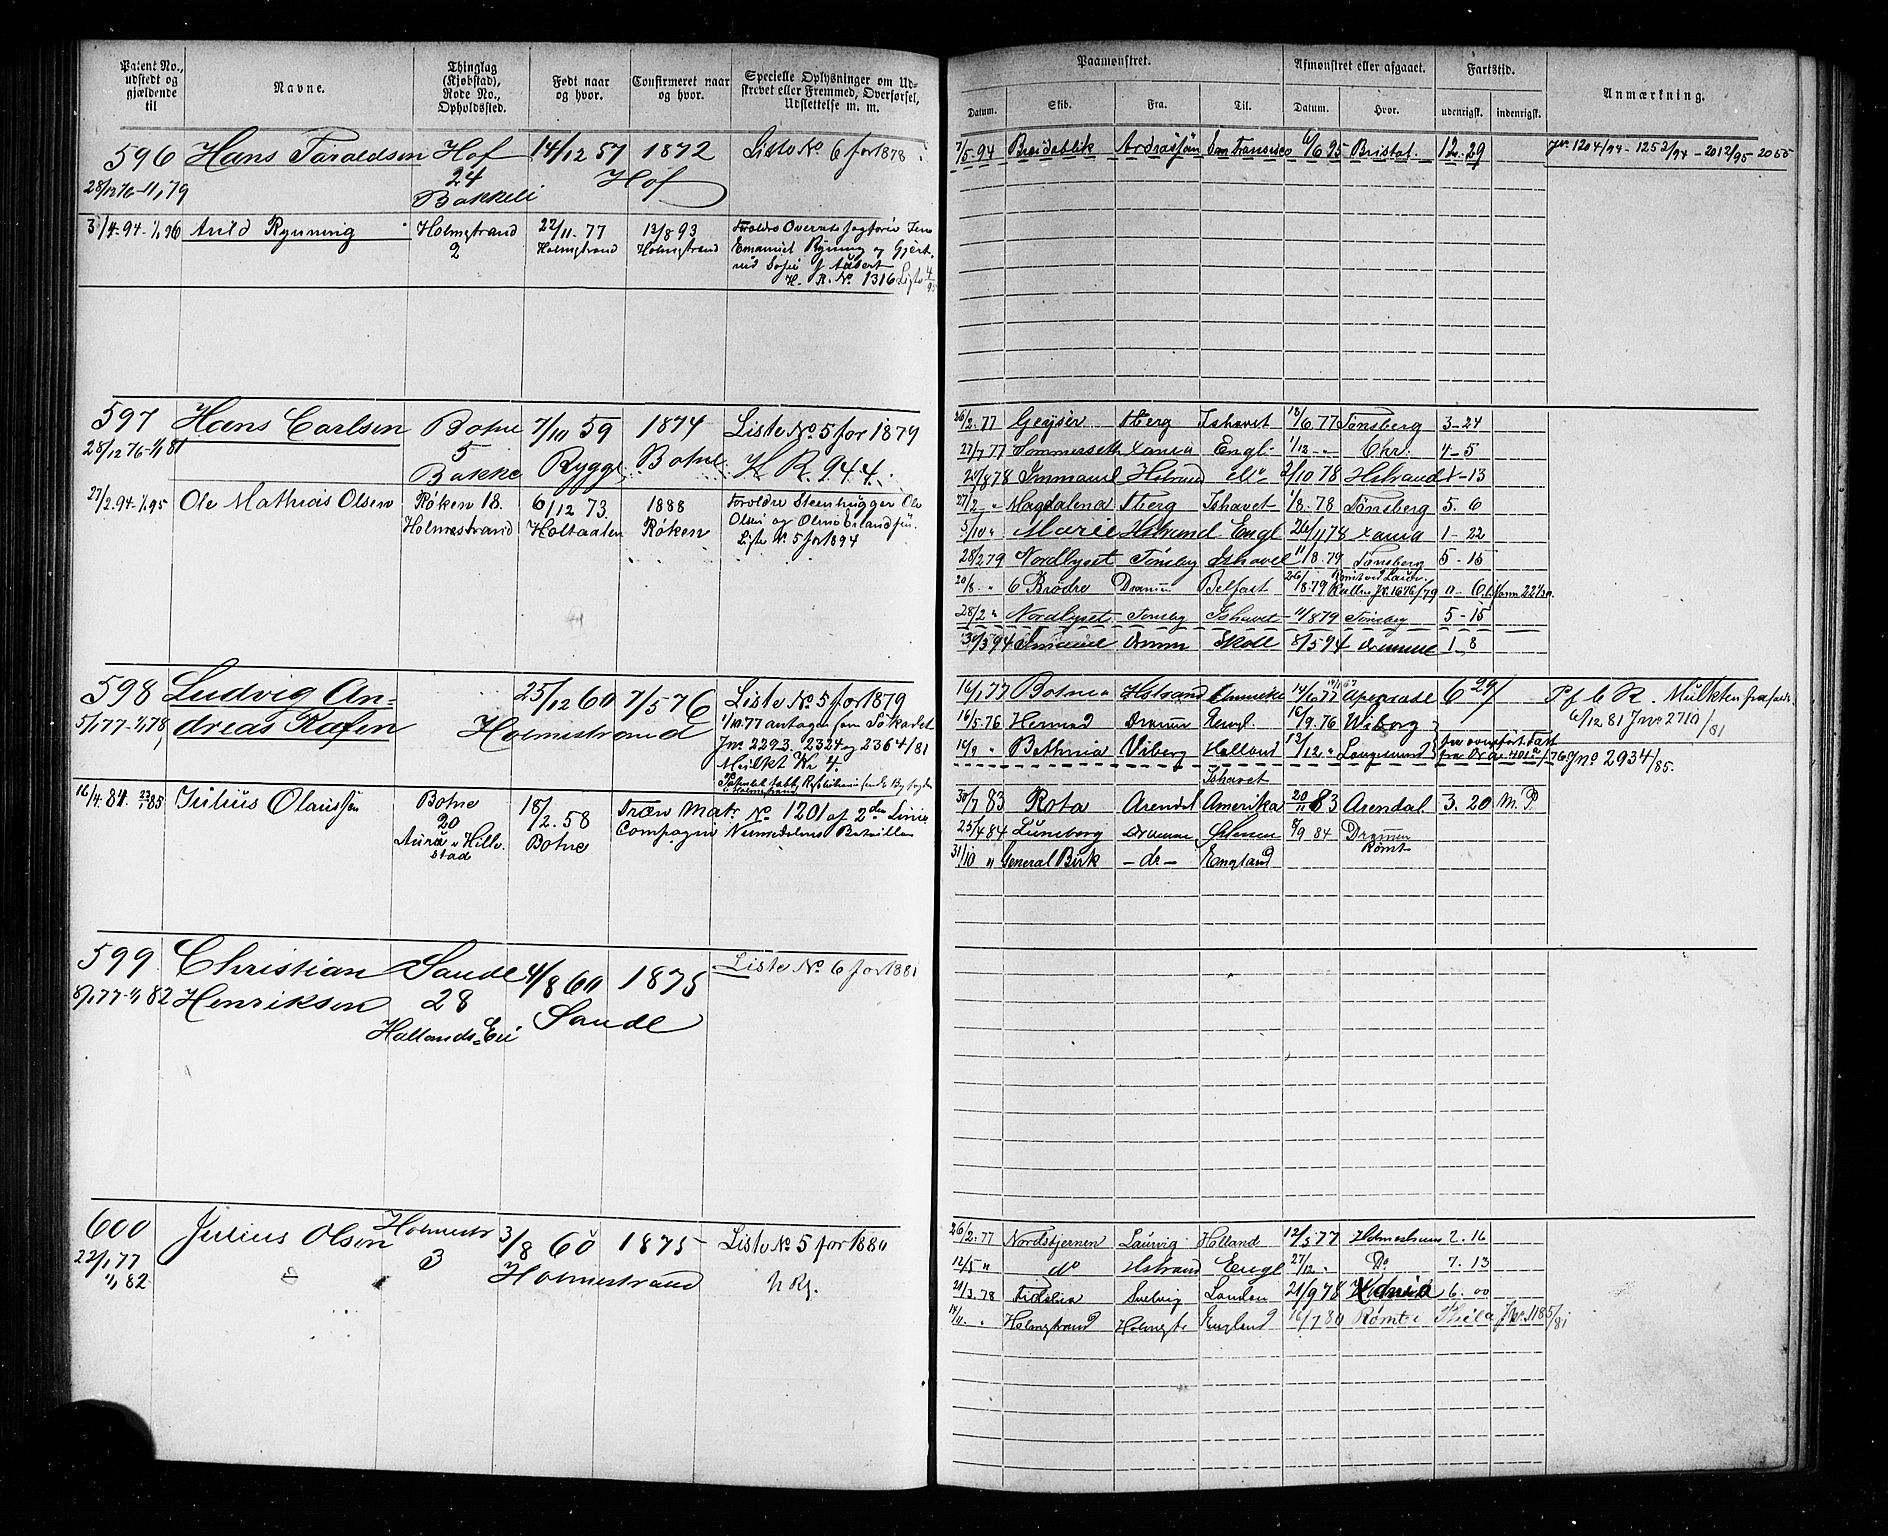 Patent No., udstedt og gjældende til
Navne.
Thinglag (Kjøbstad), Rode No., Opholdssted.
Født naar og hvor.
Confirmeret naar og hvor.
Specielle Oplysninger om Udskrevet eller Fremmed, Overførsel, Udslettelse m. m.
596 Hans Taraldsen Hof 14/12 57 1872 Liste No. 6 for 1878
28/12 76 - 1/1 79 24 Høf
Bakkeli
3/4 94 - 1/1 96 Arild Rynning Holmstrand 22/11. 77 13/8 93
2 Holmstrand Holmstrand
Emanuel Rynning og Gjert-
rud Sofie f Aubert
H. R. No. 1316 Liste 4/95
597 Hans Carlsen Botne 7/10 59 1874 Liste No. 5 for 1879
28/12 76 - 1/1 81 5 Rygge Botne H R. 944.
Bakke
27/2 94 - 1/1 95 Ole Mathias Olsen Røken 18. 6/12 73 1888 Forældre Steenhugger Ole
Holmestrand Røken
Liste No. 5 for 1894
598 Ludvig An= 25/12 60 7/5 76 Liste No. 5 for 1879
5/1 77 - 1/1 78 dreas Rafen Holmestrand 1/10 77 antagen som Søkadet
Jno 2293. 2324 og 2364/81
Mulkt Kr 4.
16/4. 84 85 Julius Olaussen Botne 18/2. 58 Træn Mat: No. 1201 af 2den Linie
20 Botne Compagni Numedalens Bataillon
599 Christian Sande 4/8 60 1875 Liste No. 6 for 1881
8/1 77 - 1/1 82 Henriksen 28 Sande
Hallands=Eie
600 Julius Olsen Holmestr 3/8 60 1875 Liste No. 5 for 1880
22/1 77 3 Holmestrand
1/1 82
Paamønstret.
Afmønstret eller afgaaet.
Fartstid.
Anmærkning.
Datum. Skib. Fra. Til. Datum. Hvor. udenrigsk. indenrigsk.
7/5 94 Breidablik 6/6 95 Bristol. 12. 29 Jno. 1204/94 - 1253/94 - 2012/95 - 2055
26/2. 77 Geysir Tberg Ishavet 18/6 77 Tønsberg 3-24
27/7 77 Sommerseth Xania Engl. 1/12 - " Chr. 4-5
Immanuel Hstrand 2/10 78 Hstrand 1-13
27/2 " Magdalena Tberg Ishavet 1/8. 78 Tønsberg 5. 6
5/10 " Marie Hstrand Engl 26/11 78 Xania 1-22
28/2 79 Nordlyset Tønsbg Ishavet 11/8. 79 Tønsberg 5-15
20/8. " 6 Brødre Dramn Belfast 26/8. 79
28/2 " Nordlyset Tønsbg Ishavet 11/8 79 Tønsbeg 5-15
30/3 94 8/5 94 1 8
16/1 77 Botnia Hstrand 14/6 77 6 29/
16/5. 76 Hermod Dramn Engl. 16/9. 76 Wiborg
6/12 81 Jno 2710/81
16/9 " Bethnia Viberg Holland 13/12. " Langesund Jno 2934/85.
Ishavet
30/7 83 Rota Arendal Amerika 20/11 83 Arendal 3. 20 M. P.
25/4 84 Lüneborg 8/9 84 Dramen
Rømt
31/10 " General Birk - do - England
26/2. 77 Nordstjernen Laurvig Holland 12/5 77 2. 16
12/5 " do Hstrand Engl 27/12. " Do 7. 13
21/3. 78 Fidelia Svelvig London 21/9 78 Xania 6. 00
Holmstrand England 16/7 80 Rømt i Jno. 1185/81